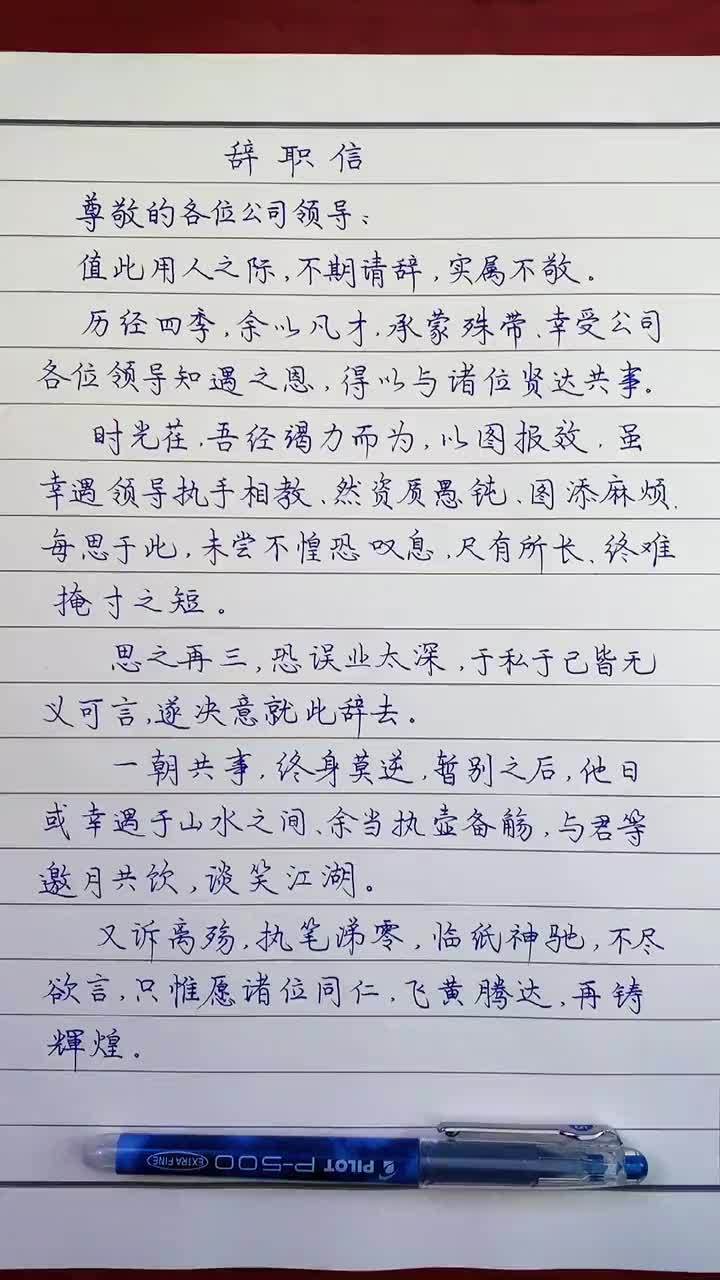 辞职信
尊敬的各位公司领导：
值此用人之际，不期请辞，实属不敬。
历经四季，余以凡才，承蒙殊带、幸受公司
各位领导知遇之恩，得以与诸位贤达共事。
时光荏，吾经竭力而为，以图报效，虽
幸遇领导执手相教、然资质愚钝、图添麻烦，
每思于此，未尝不惶恐叹息，尺有所长、终难
掩寸之短。
思之再三，恐误业太深，于私于己皆无
义可言，遂决意就此辞去。
一朝共事，终身莫逆，暂别之后，他日
或幸遇于山水之间、余当执壶备觞，与君等
邀月共饮，谈笑江湖。
又诉离殇，执笔涕零，临纸神驰，不尽
欲言，只惟愿诸位同仁，飞黄腾达，再铸
輝煌。
PILOT P-500 EXTRA FINE